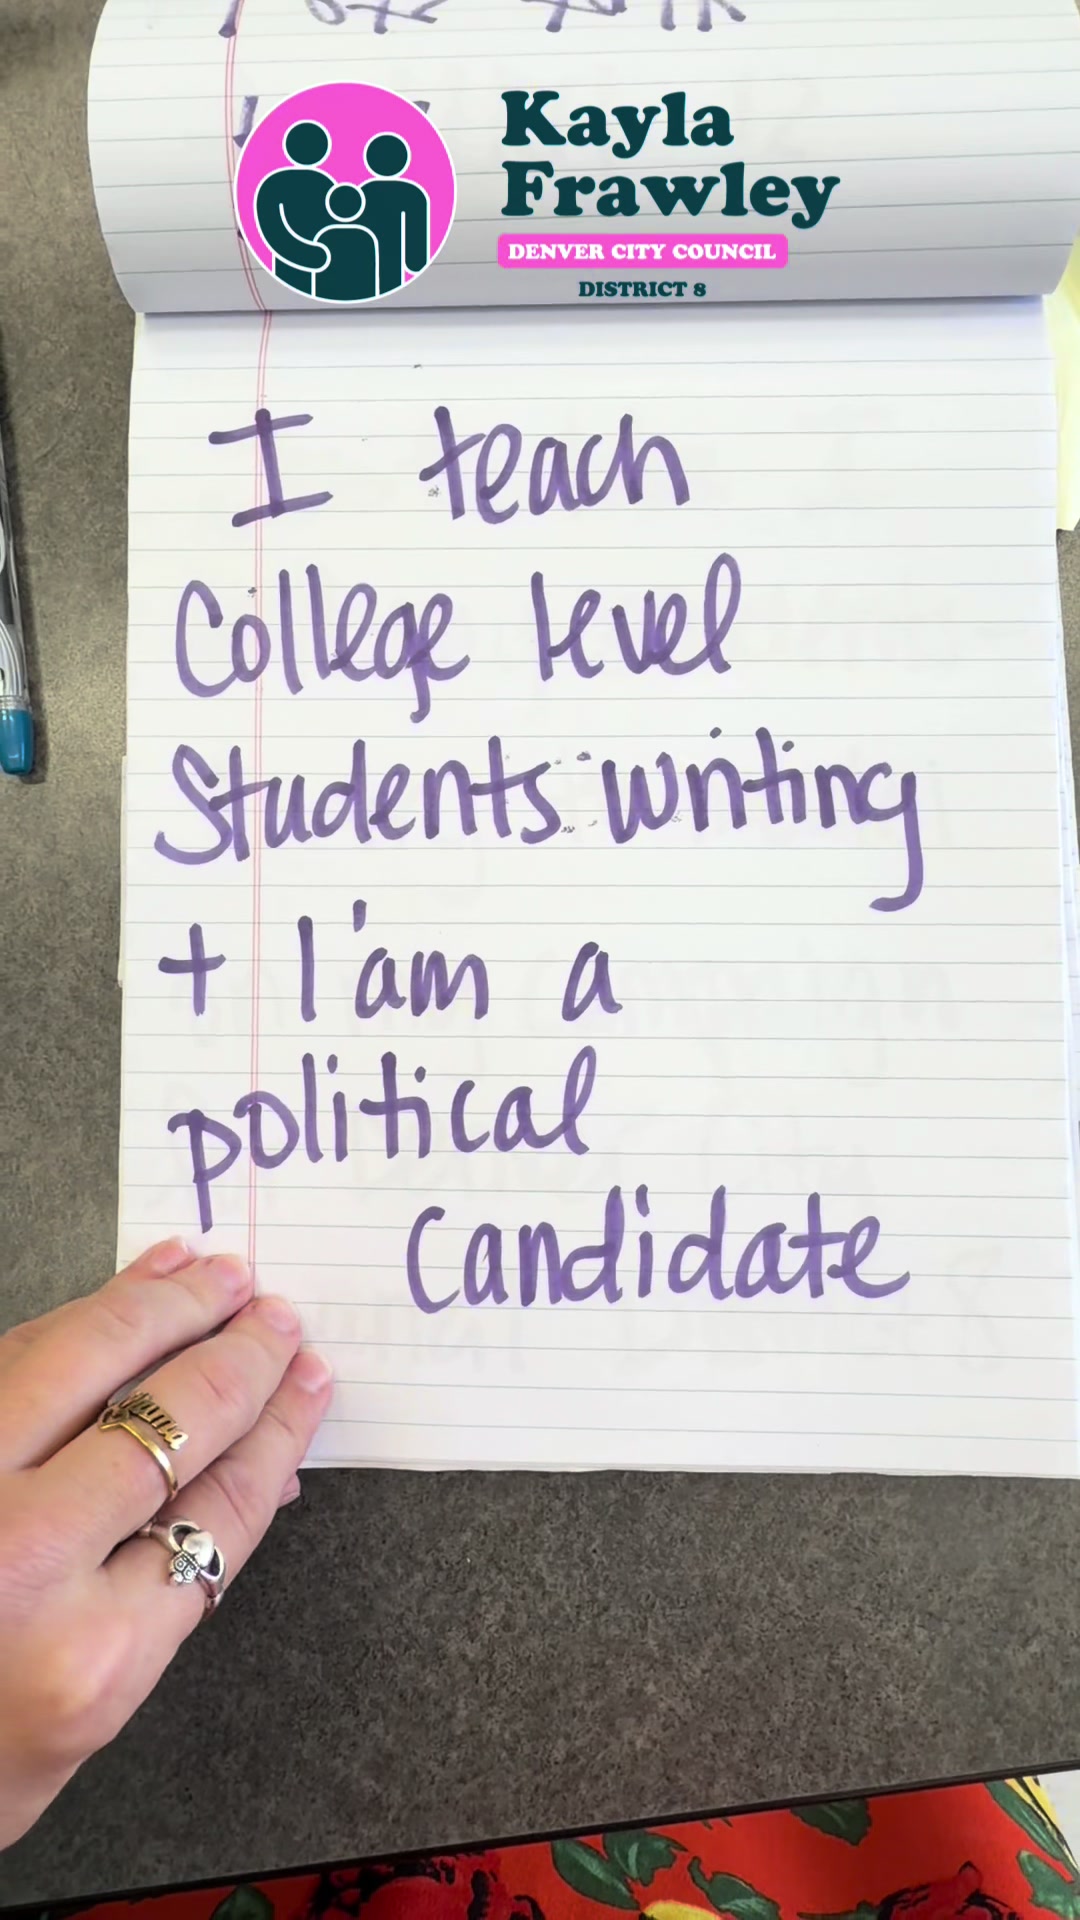 Kayla
Frawley
DENVER CITY COUNCIL
DISTRICT 8
I teach
College level
Students writing
+ I'am a
political
candidate
Mama